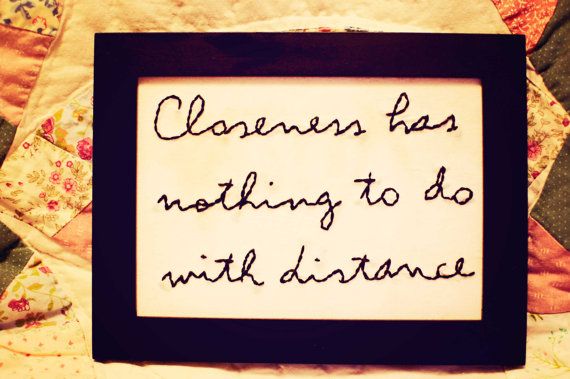 Closeness has
nothing to do
with distance